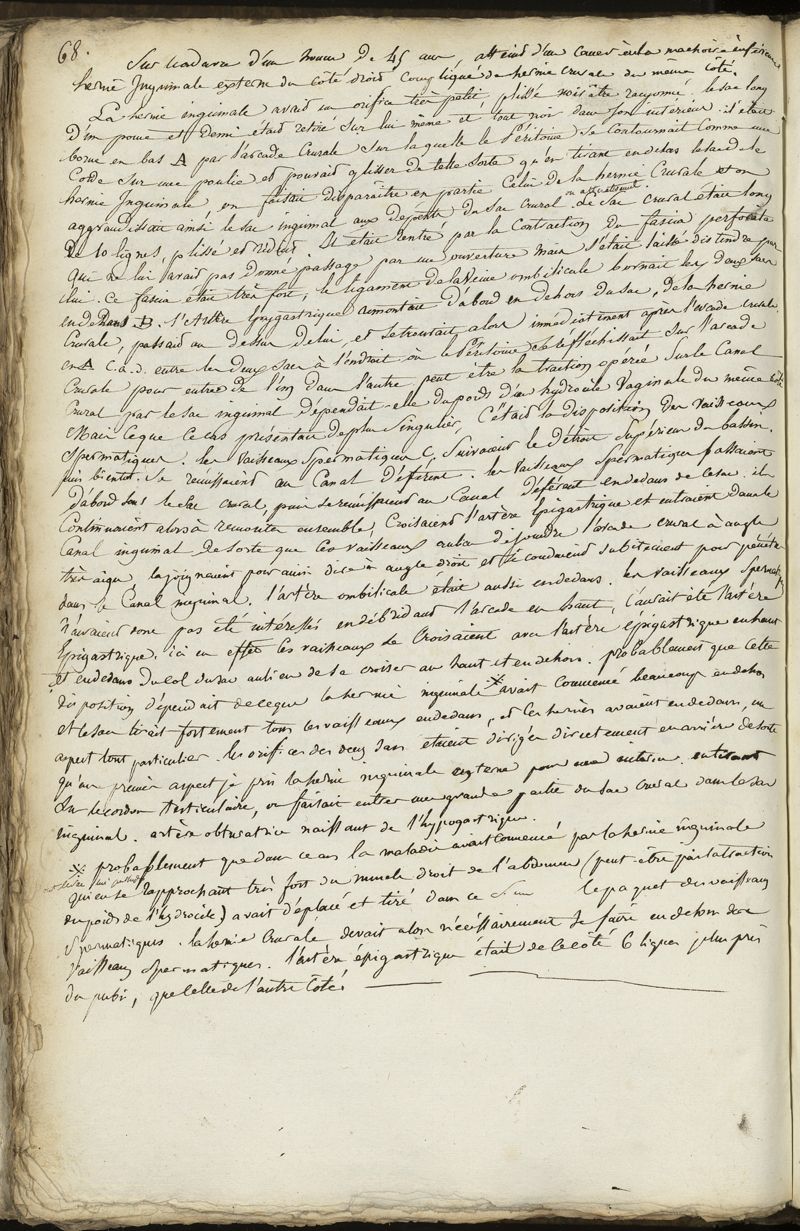 68.
Sur cadavre d'un homme de 45 ans, atteint d'un cancer à la machoire inférieure
hernie Inguinale externe du côté droit Compliquée de hernie crurale du même côté.
La hernie inguinale avait un orifice très petit, plissé noirâtre rayonné, le sac long
d'un pouce et demi était retiré sur lui même et tout noir dans son intérieur il était
borné en bas A par l'arcade Crurale sur laquelle le Péritoine se Contournait Comme une
Corde sur une poulie et pouvait glisser de telle sorte qu'en tirant en dehors le sac de la
hernie Inguinale, on faisait disparaître en partie Celui de la hernie Crurale et on
aggrandissait ainsi le sac inguinal aux dépents du sac Crural. ce sac Crural était long
de 10 lignes, plissé et réduit Il était rentré par la Contraction du fascia perforata
qui ne lui avait pas donné passage par une ouverture mais s'était laissé distendre par
lui. Ce fascia était très fort, le ligament de la Veine ombilicale bornait les deux sacs
en dedans B. l'Artère Epygastrique remontait d'abord en dehors du sac, de la hernie
Crurale, passait au dessus de lui, et se trouvait alors immédiatement après l'arcade crurale
en A c.a.d. entre les deux sacs à l'endroit où le Péritoine se refléchissait sur l'arcade
Crurale pour entrer de l'un dans l'autre peut être la traction opérée sur le Canal
Crural par le sac inguinal dépendait-elle du poids d'un hydrocèle Vaginale du même côté
Mais ce que ce cas présentait de plus singulier, C'était la disposition des Vaisseaux
Spermatiques. les Vaisseaux Spermatiques C, suivaient le détroit supérieur du bassin.
puis bientot se reunissaient au Canal Déférent. les Vaisseaux Spermatiques passaient
d'abord sous le sac crural, puis se reunissaient au Canal Déférent en dedans de ce sac. ils
Continuaient alors à remonter ensemble, Croisaient l'artère Epigastrique et entraient dans le
Canal inguinal. De sorte que Ces Vaisseaux au lieu de joindre l'arcade crural à angle
très aigu, la joignaient pour ainsi dire à angle droit et se coudaient subitement pour pénétrer
dans le Canal inguinal. l'artère ombilicale était aussi en dedans. les Vaisseaux Spermat.
n'auraient donc pas été intéressés en débridant l'arcade en haut, C'aurait été l'artère
Epygastrique. ici en effet les vaisseaux se Croisaient avec l'artère épigastrique en haut
et en dedans du Col du sac au lieu de se croiser au haut et en dehors. probablement que cette
disposition dépendait de ce que la hernie inguinale * avait Commencé beaucoup en dehors
et le sac tirait fortement tous les vaisseaux en dedans, et les hernies avaient en dedans, un
aspect tout particulier. les orifices des deux sacs étaient dirigés directement en arrière de sorte
qu'au premier aspect je pris la hernie inguinale externe pour une interne. en tirant
sur le cordon testiculaire, on faisait entrer une grande partie du sac crural dans le sac
inguinal. artère obturatrice naissant de l'hypogastrique.
* probablement que dans ce cas la maladie avait commencé par la hernie inguinale
qui en se rapprochant très fort du muscle droit de l'abdomen (peut-être par la traction
du poids de l'hydrocèle) avait déplacé et tiré dans ce sens le paquet des vaisseaux
Spermatiques. la hernie Crurale devait alors nécessairement se faire en dehors des
Vaisseaux Spermatiques. l'artère épigastrique était de ce côté 6 lignes plus près
du pubis, que celle de l'autre Côté.